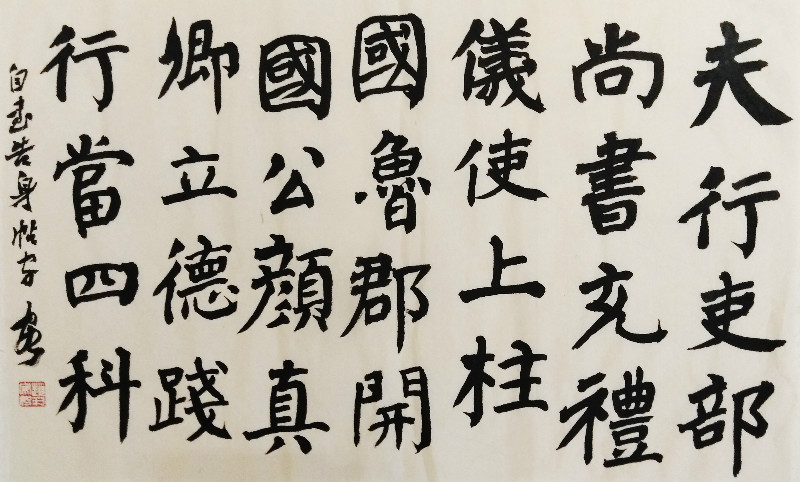 夫行吏部
尚書充禮
儀使上柱
國魯郡開
國公顏真
卿立德踐
行當四科
自书告身帖